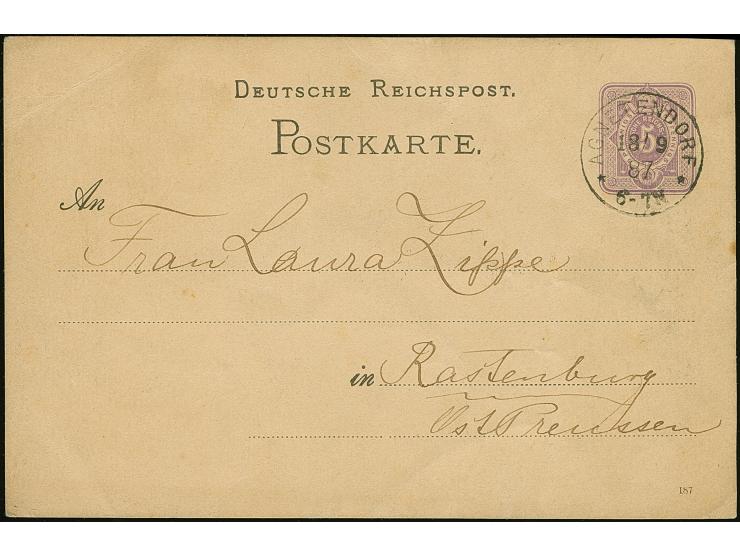 DEUTSCHE REICHSPOST.
POSTKARTE.
AGNETENDORF
18/9
87
6-7N
5
An
Frau Laura Zippe
in Rastenburg
Ost Preussen
187